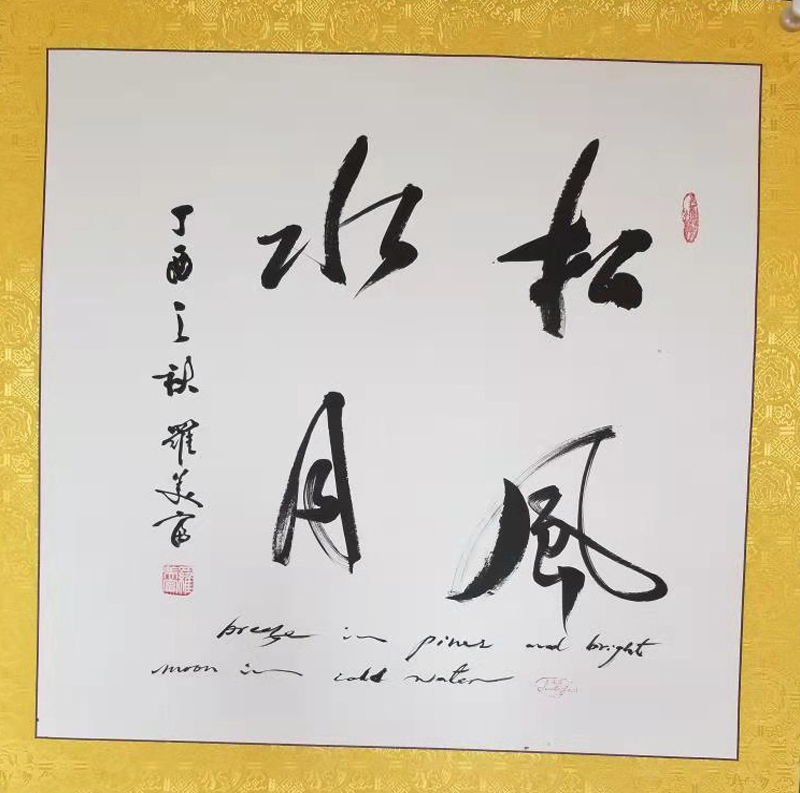 松风
水月
丁酉之秋 羅美富
breeze in pines and bright
moon in cold water